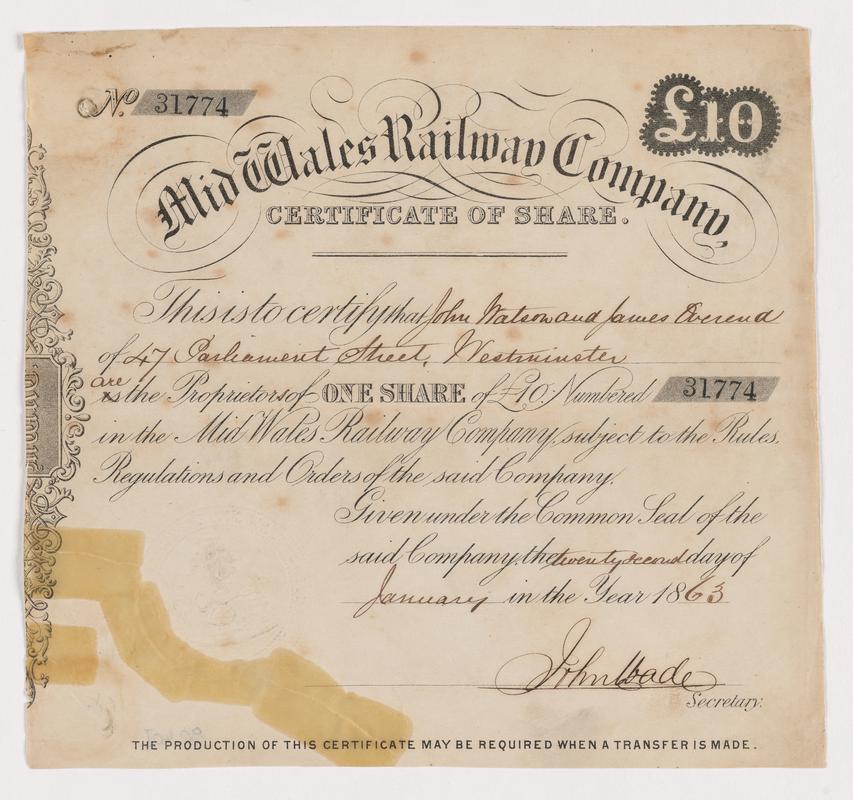 No. 31774
£10
Mid Wales Railway Company,
CERTIFICATE OF SHARE.
This is to certify that John Watson and James Overend
of 47 Parliament Street, Westminster
are
is the Proprietors of ONE SHARE of £10: Numbered 31774
in the Mid Wales Railway Company, subject to the Rules,
Regulations and Orders of the said Company.
Given under the Common Seal of the
said Company, the twenty second day of
January in the Year 1863
John Wade
Secretary.
THE PRODUCTION OF THIS CERTIFICATE MAY BE REQUIRED WHEN A TRANSFER IS MADE.